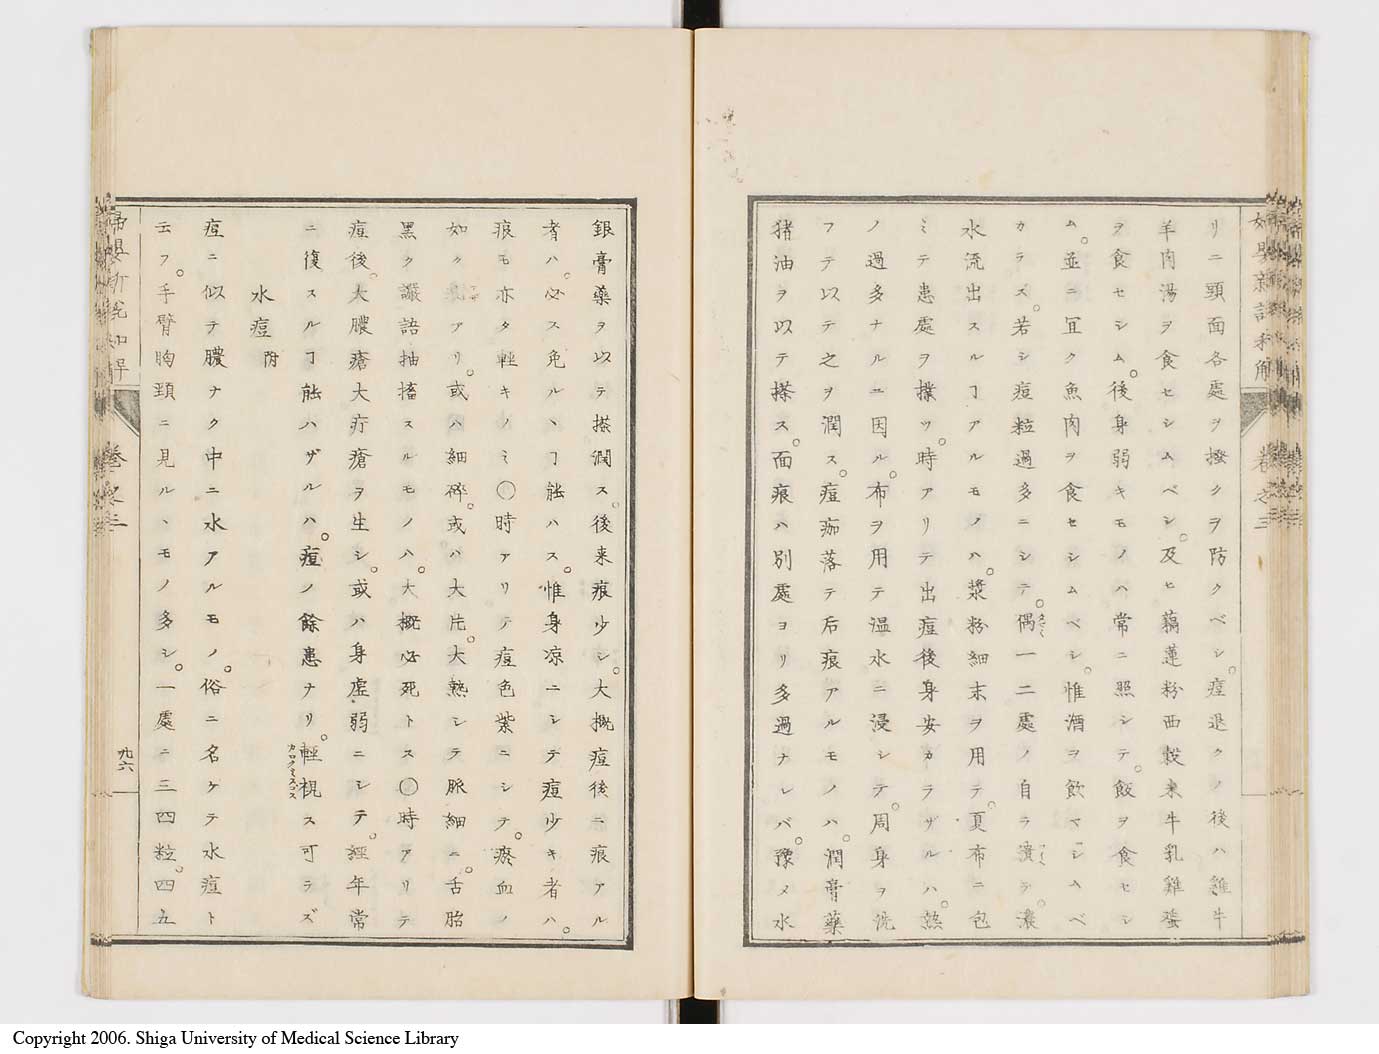 リニ頸面各處ヲ撥クヲ防クベシ。痘退クノ後ハ雞牛
羊肉湯ヲ食セシムベシ。及ヒ藕蓮粉西穀米牛乳雞蛋
ヲ食セシム。後身弱キモノハ常ニ照シテ。飯ヲ食セシ
ム。並ニ宜ク魚肉ヲ食セシムベシ。惟酒ヲ飲マシムベ
カラズ。若シ痘粒過多ニシテ。偶一二處ノ自ラ潰テ。濃
水流出スルヿアルモノハ。漿粉細末ヲ用テ。夏布ニ包
ミテ患處ヲ撲ツ。時アリテ出痘後身安カラザルハ。熱
ノ過多ナルニ因ル。布ヲ用テ温水ニ浸シテ。周身ヲ洗
フテ以テ之ヲ潤ス。痘痂落テ后痕アルモノハ。潤膏藥
猪油ヲ以テ搽ス。面痕ハ別處ヨリ多過ナレバ。豫メ水
銀膏藥ヲ以テ搽潤ス。後来痕少シ。大概痘後ニ痕アル
者ハ。必ス免ルヽヿ能ハス。惟身凉ニシテ痘少キ者ハ。
痕モ亦タ輕キノミ〇時アリテ痘色紫ニシテ。瘀血ノ
如クアリ。或ハ細碎。或ハ大片。大熱シテ脈細ニ。舌胎
黑ク讝語抽搐スルモノハ。大概必死トス〇時アリテ
痘後。大膿瘡大疔瘡ヲ生シ。或ハ身虚弱ニシテ。經年常
ニ復スルヿ能ハザルハ。痘ノ餘患ナリ。輕視ス可ラズ
水痘 附
痘ニ似テ膿ナク中ニ水アルモノ。俗ニ名ケテ水痘ト
云フ。手臂胸頸ニ見ルヽモノ多シ。一處ニ三四粒。四五
巻之三
九六
Copyright 2006. Shiga University of Medical Science Library